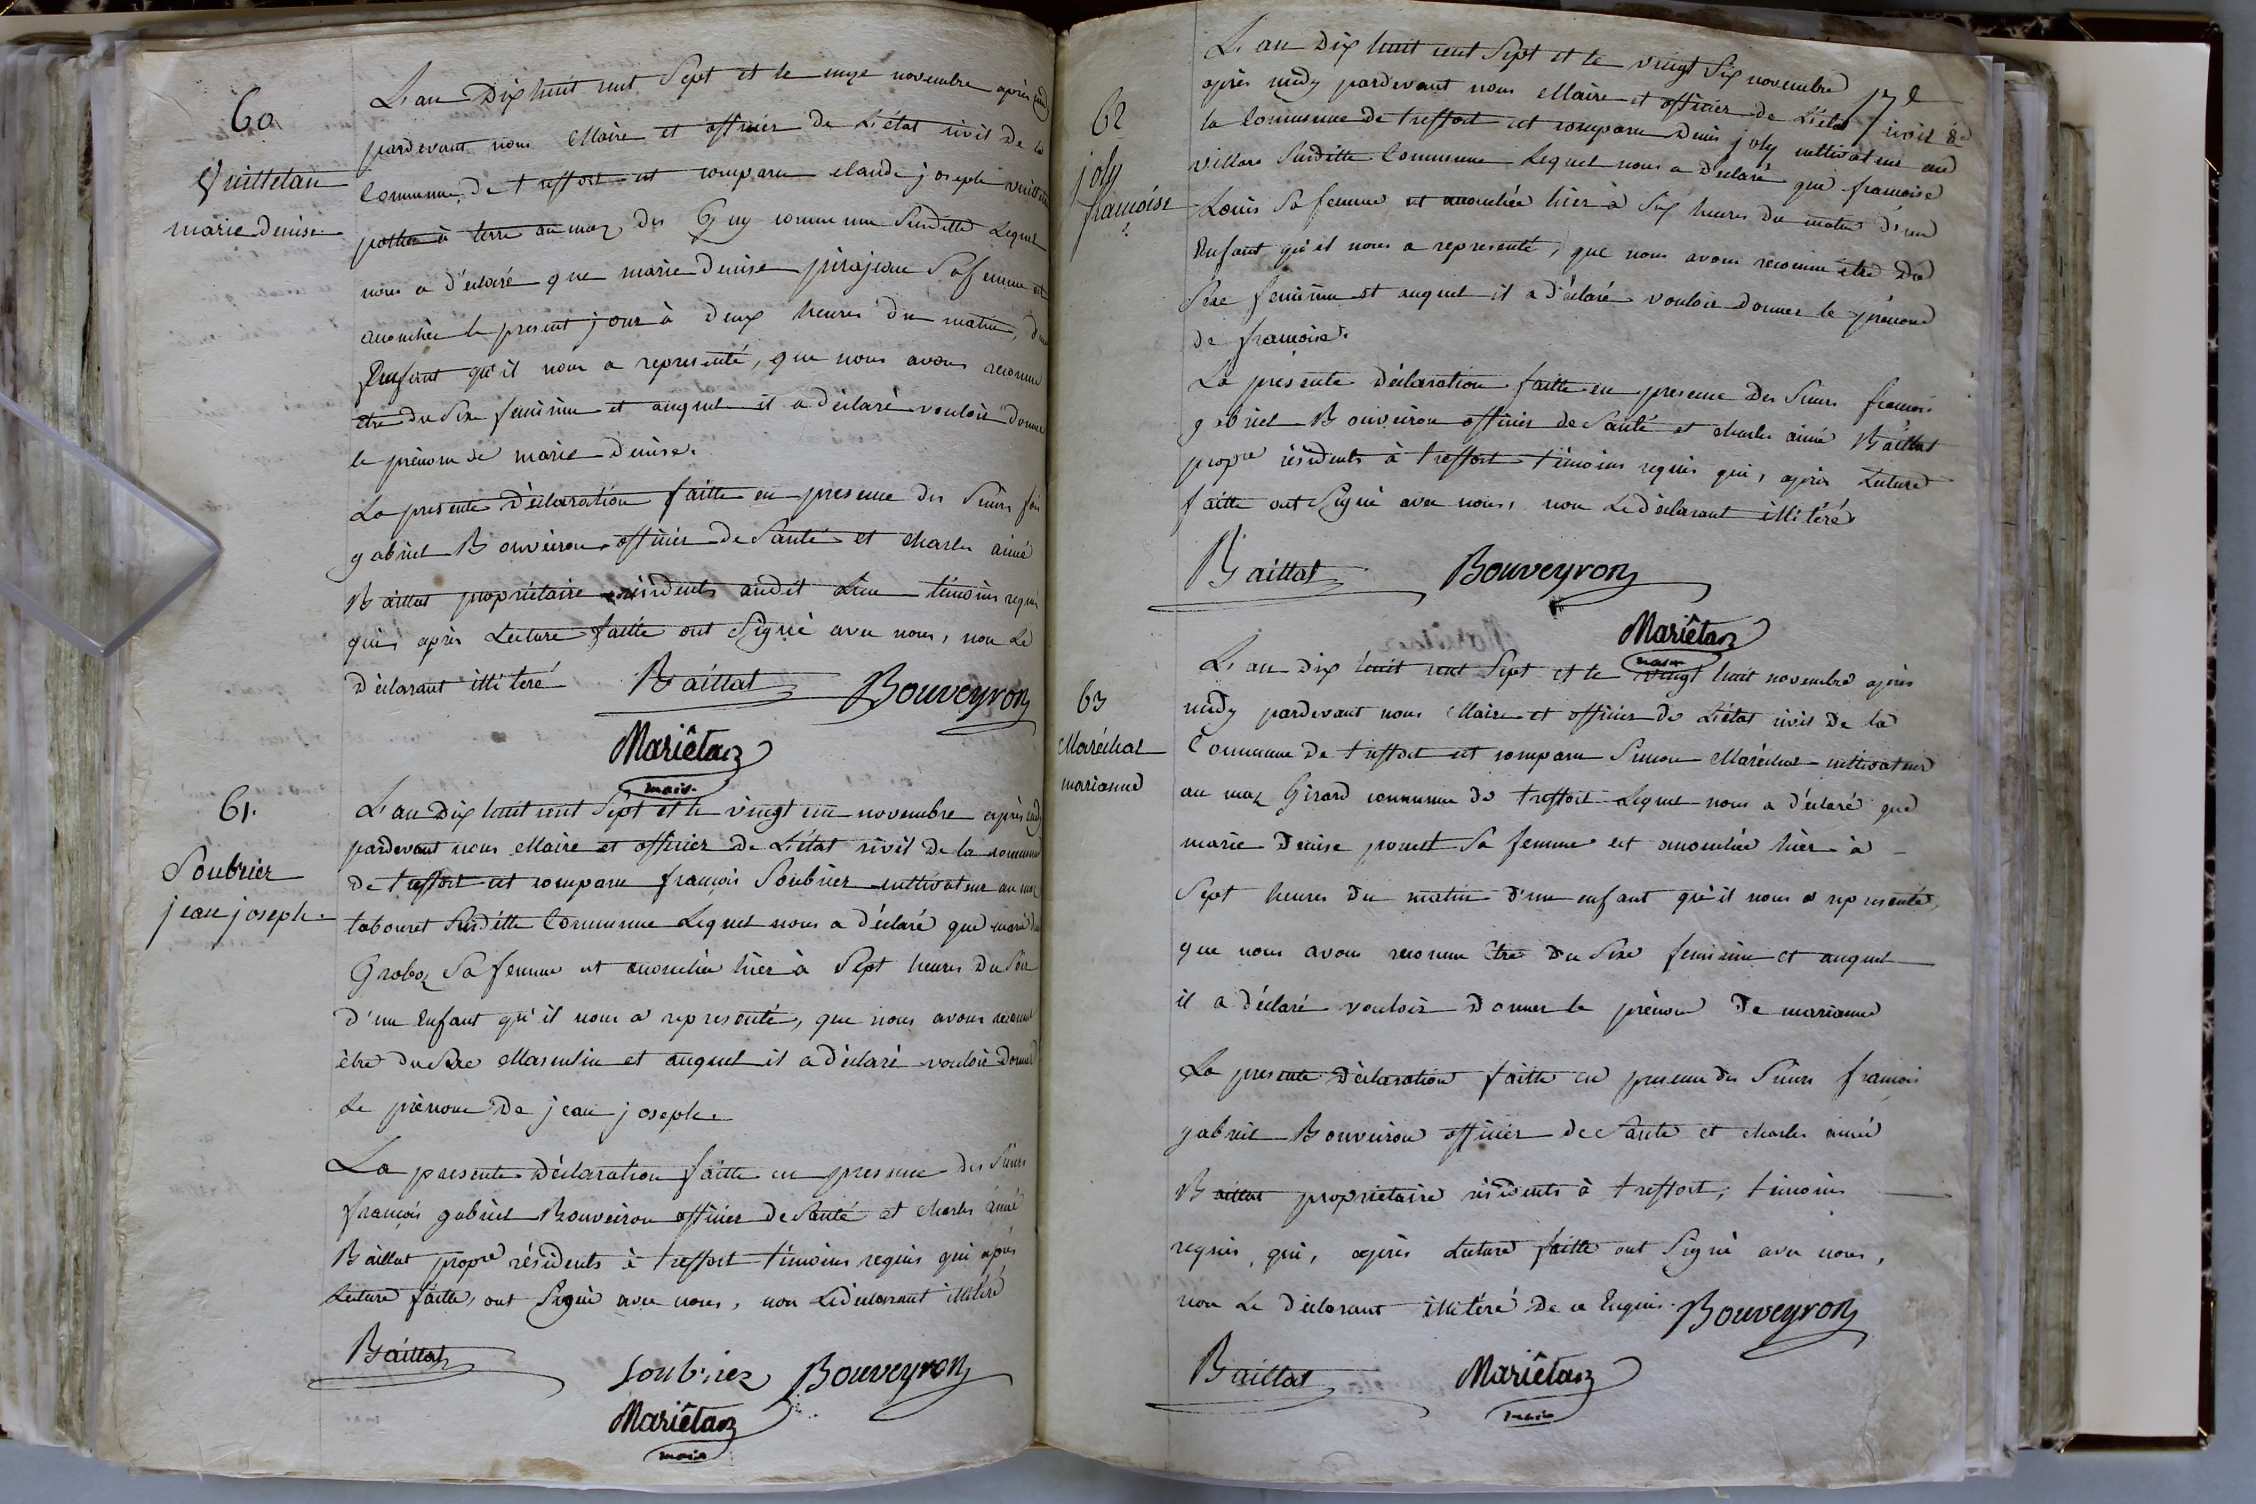 60
Vuittelan
marie denise
L'an Dix huit cent Sept et le onze novembre après midy
pardevant nous Maire et officier de L'état civil De la
Commune De treffort est comparu claude joseph
potier à terre au maz des Guy commune Susditte Lequel
nous a d'éclaré que marie Denise pirajean Sa femme est
accouchée le present jour à Deux heures Du matin, d'un
Enfant qu'il nous a representé, que nous avons reconnu
être du Sexe feminin et auquel il a déclaré vouloir Donner
le prénom de marie Denise.
La presente Déclaration faitte en presence des Sieurs
gabriel Bouveiron officier De Santé et charles aimé
Baillat propriétaire résidents audit Lieu témoins requis
qui, après Lecture faitte ont Signé avec nous, non Le
Déclarant illiteré
Baillat
Bouveyron
Mariétan
maire
61.
Soubrier
jean joseph.
L'an Dix huit cent Sept et le vingt un novembre après midy
pardevant nous Maire et officier De L'état civil De la commune
De treffort est comparu francois Soubrier cultivateur au maz
tabouret Susditte Commune Lequel nous a d'éclaré que marie
Groboz Sa femme est accouchée hier à Sept heures Du Soir
D'un Enfant qu'il nous a representé, que nous avons reconnu
être du Sexe Masculin et auquel il a déclaré vouloir Donner
Le prénom De jean joseph.
La presente Déclaration faitte en presence des Sieurs
françois gabriel Bouveiron officier De Santé et charles aimé
Baillat propre résidents à treffort témoins requis qui après
Lecture faitte, ont Signé avec nous, non Le déclarant illiteré
Baillat
Soubriez
Bouveyron
Mariétan
maire
62
joly
francoise
L'an Dix huit cent Sept et le vingt Six novembre
après midy pardevant nous Maire et officier de L'état civil de
la Commune de treffort est comparu Denis joly cultivateur au
villars Susditte Commune Lequel nous a d'éclaré que francoise
Louis Sa femme est accouchée hier à Six heures du matin d'un
Enfant qu'il nous a representé, que nous avons reconnu être Du
Sexe feminin et auquel il a d'éclaré vouloir Donner le prénom
de francoise.
La presente Déclaration faitte en presence Des Sieurs francois
gabriel Bouveiron officier de Santé et charles aimé Baillat
propre résidents à treffort témoins requis qui, après Lecture
faitte ont Signé avec nous, non Le déclarant illitéré
Baillat
Bouveyron
Mariétan
maire
63
Maréchal
marianne
L'an Dix huit cent Sept et le vingt huit novembre après
midy pardevant nous Maire et officier de L'état civil De la
Commune De treffort est comparu Simon Maréchal cultivateur
au maz Girard commune de treffort Lequel nous a d'éclaré que
marie Denise ponest Sa femme est accouchée hier à
Sept heures Du matin D'un enfant qu'il nous a representé,
que nous avons reconnu être Du Sexe feminin et auquel
il a déclaré vouloir Donner le prénom De marianne
La presente Déclaration faitte en presence des Sieurs francois
gabriel Bouveiron officier de Santé et charles aimé
Baillat propriétaire résidents à treffort, témoins
requis, qui, après Lecture faitte ont Signé avec nous,
non Le Déclarant illitéré De ce Enquis.
Bouveyron
Baillat
Mariétan
maire